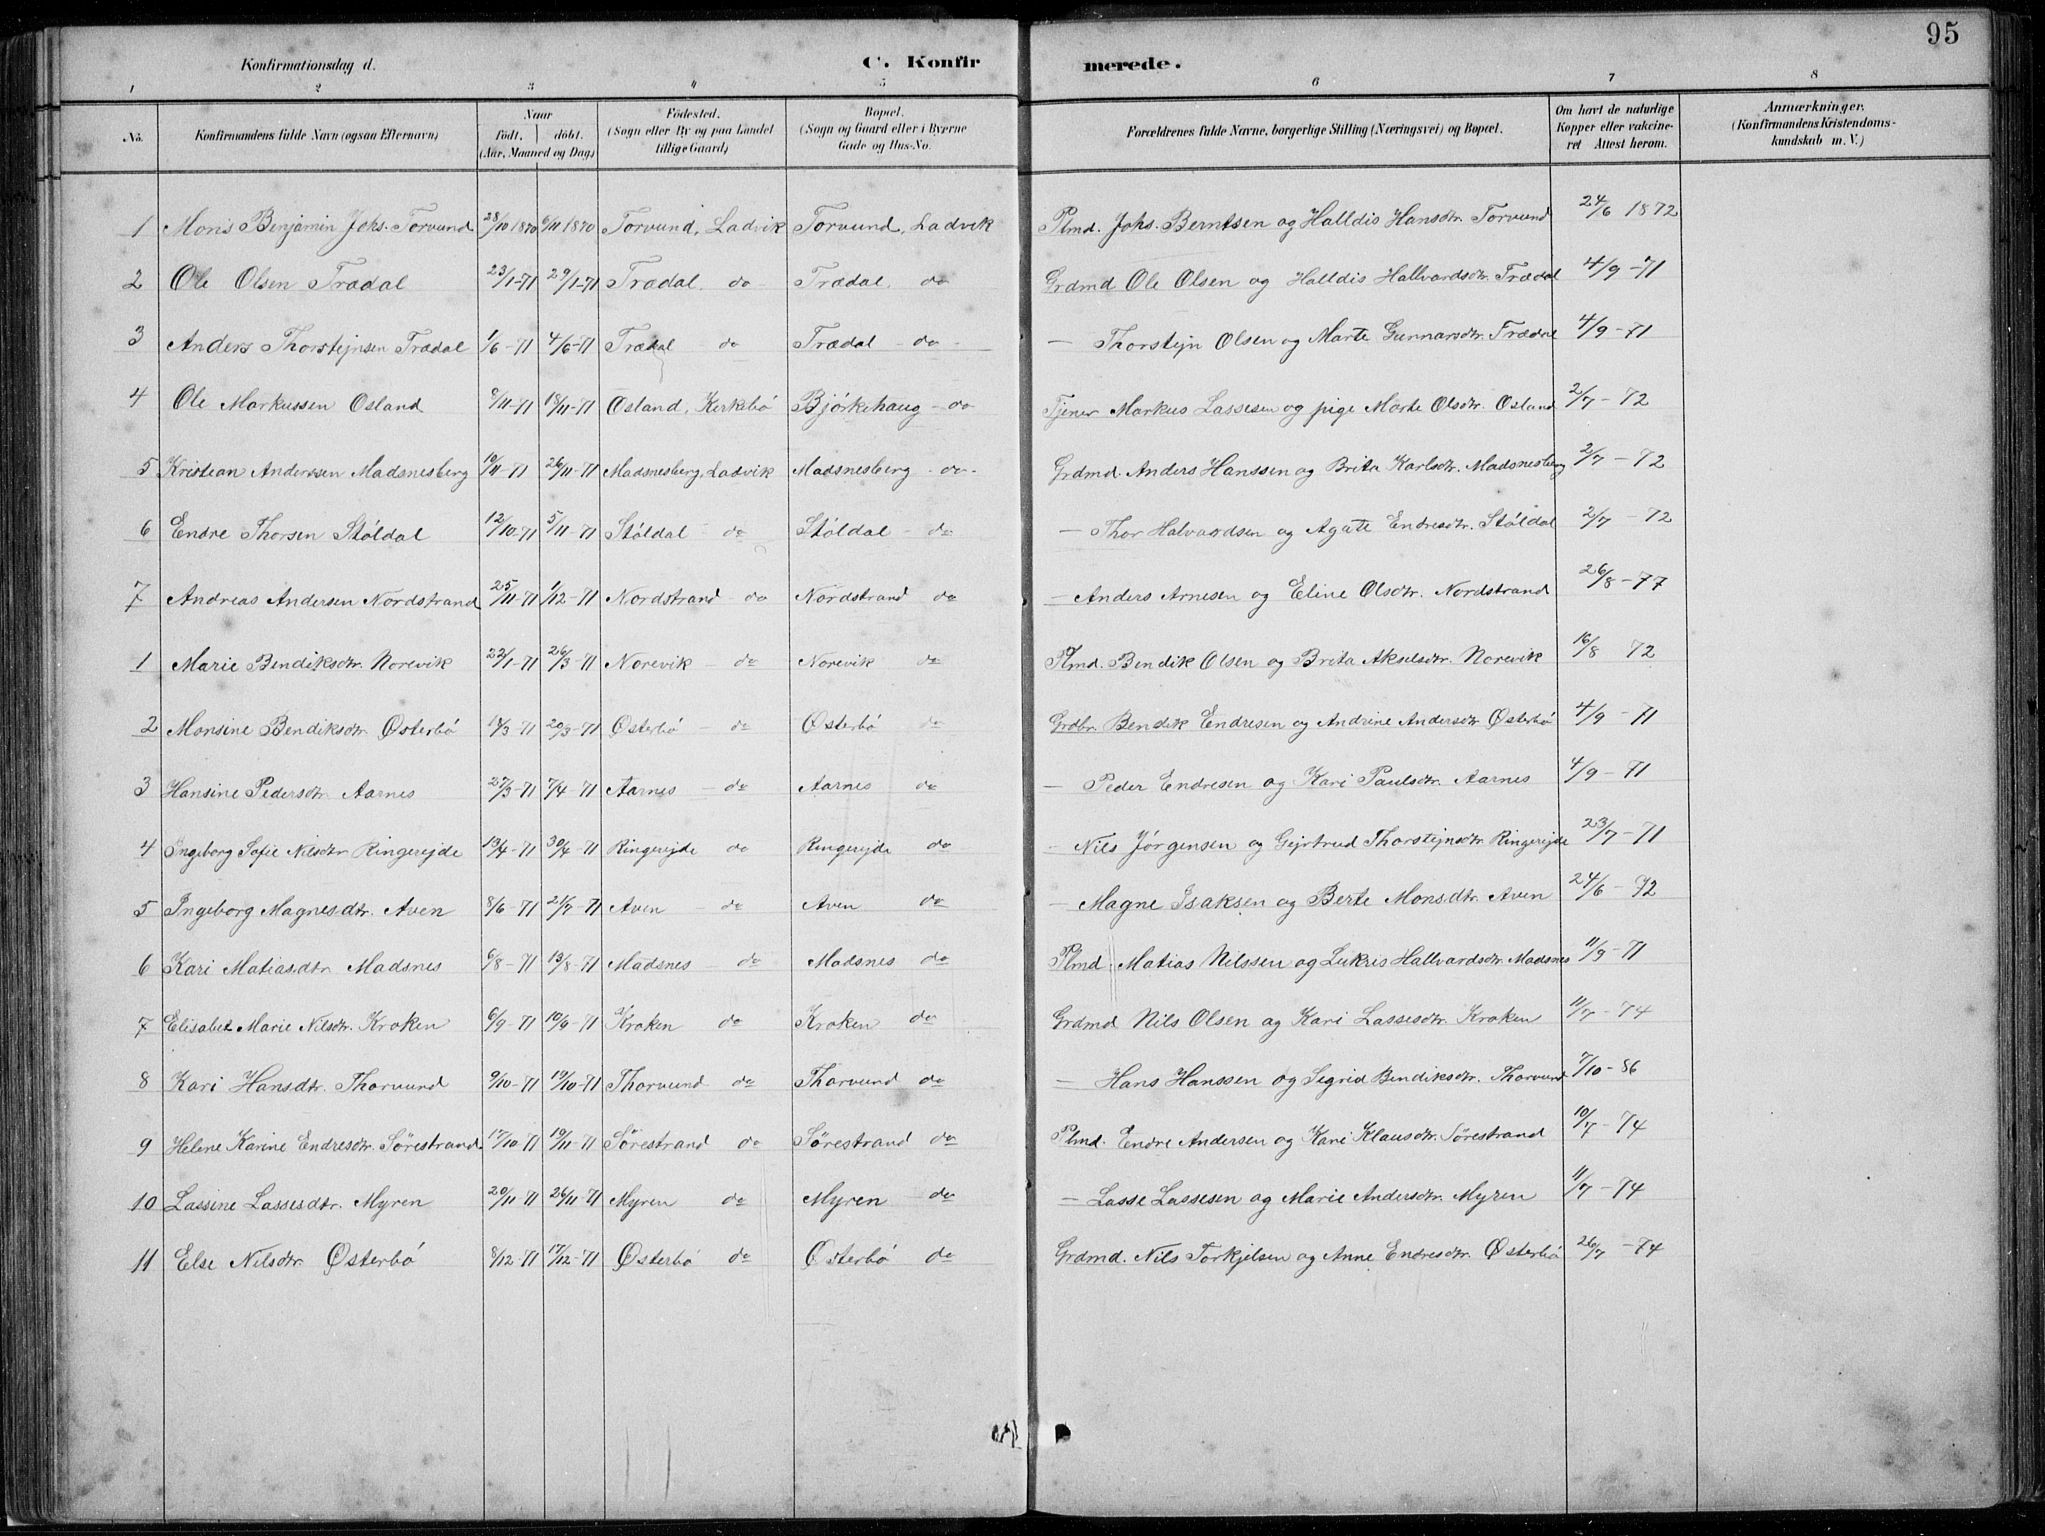 95
Konfirmationsdag d. C. Konfir merede.
1 2 3 4 5 6 7 8
No. Konfirmandens fulde Navn (ogsaa Efternavn) Naar født, døbt. (Aar, Maaned og Dag) Fødested. (Sogn eller By og paa Landet tillige Gaard) Bopæl. (Sogn og Gaard eller i Byerne Gade og Hus-No. Forældrenes fulde Navne, borgerlige Stilling (Næringsvei) og Bopæl. Om havt de naturlige Kopper eller vakcineret Attest herom. Anmærkninger. (Konfirmandens Kristendomskundskab m. V.)
1 Mons Benjamin Johs. Torvund 28/10 1870 6/11 1870 Torvund, Ladvik Torvund, Ladvik Plmd. Johs. Berntsen og Halldis Hansdtr. Torvund 24/6 1872
2 Ole Olsen Trædal 23/1-71 29/1-71 Trædal, do Trædal, do Grdmd Ole Olsen og Halldis Hallvardsdtr. Trædal 4/9-71
3 Anders Thorstejnsen Trædal 1/6-71 4/6-71 Trædal - do Trædal - do - — Thorstejn Olsen og Marte Gunnarsdtr. Trædal 4/9-71
4 Ole Markussen Osland 9/11-71 18/11-71 Osland, Kirkebø Bjørkehaug - do Tjener Markus Lassesen og pige Marte Olsdtr. Osland 2/7-72
5 Kristian Anderssen Madsnesberg 10/11-71 26/11-71 Madsnesberg, Ladvik Madsnesberg - do - Grdmd. Anders Hanssen og Brita Karlsdtr. Madsnesberg 2/7-72
6 Endre Thorsen Støldal 12/10-71 5/11-71 Støldal - do Støldal - do — Thor Halvardsen og Agate Endresdtr. Støldal 2/7-72
7 Andreas Andersen Nordstrand 25/11-71 1/12-71 Nordstrand - do Nordstrand do — Anders Arnesen og Eline Olsdtr. Nordstrand 26/8-77
1 Marie Bendiksdtr. Norevik 22/1-71 26/3-71 Norevik - do Norevik do Plmd. Bendik Olsen og Brita Akselsdtr. Norevik 16/8 72
2 Monsine Bendiksdtr. Østerbø 14/3-71 20/3-71 Østerbø - do Østerbø do Grdbr. Bendik Endresen og Andrine Andersdtr Østerbø 4/9-71
3 Hansine Pedersdtr. Aarnes 27/3-71 7/4-71 Aarnes - do Aarnes do — Peder Endresen og Kari Paulsdtr. Aarnes 4/9-71
4 Ingeborg Sofie Nilsdtr Ringerejde 13/4-71 30/4-71 Ringerejde do Ringerejde do — Nils Jørgensen og Gejrtrud Thorstejnsdtr Ringerejde 23/7-71
5 Ingeborg Magnesdtr. Aven 8/6-71 21/7-71 Aven - do Aven do — Magne Isaksen og Berte Monsdtr. Aven 24/6-72
6 Kari Matiasdtr. Madsnes 6/8-71 13/8-71 Madsnes do Madsnes do Plmd. Matias Nilssen og Lukris Hallvardsdtr. Madsnes 11/9-71
7 Elisabet Marie Nilsdtr. Kroken 6/9-71 10/9-71 Kroken do Kroken do Grdmd Nils Olsen og Kari Lassesdtr. Kroken 11/7-74
8 Kari Hansdtr. Thorvund 9/10-71 19/10-71 Thorvund do Thorvund do — Hans Hanssen og Sigrid Bendiksdtr. Thorvund 7/10-86
9 Helene Karine Endresdtr. Sørestrand 17/10-71 19/11-71 Sørestrand do Sørestrand do Plmd. Endre Andersen og Kari Klausdtr. Sørestrand 10/7-74
10 Lassine Lassesdtr. Myren 20/11-71 26/11-71 Myren do Myren do — Lasse Lassesen og Marie Andersdtr. Myren 11/7-74
11 Else Nilsdtr Østerbø 8/12-71 17/12-71 Østerbø do Østerbø do Grdmd. Nils Torkjelsen og Anne Endresdtr. Østerbø 26/7-74